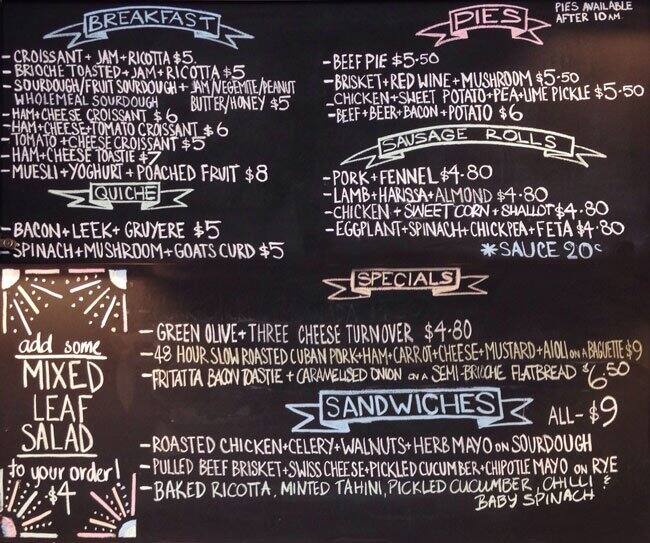 BREAKFAST
- CROISSANT + JAM + RICOTTA $5.
- BRIOCHE TOASTED + JAM + RICOTTA $5
- SOURDOUGH/FRUIT SOURDOUGH + JAM/VEGEMITE/PEANUT
WHOLEMEAL SOURDOUGH BUTTER/HONEY $5
- HAM+CHEESE CROISSANT $6
- HAM+CHEESE+TOMATO CROISSANT $6
- TOMATO + CHEESE CROISSANT $5
- HAM+CHEESE TOASTIE $7
- MUESLI + YOGHURT + POACHED FRUIT $8
QUICHE
- BACON + LEEK + GRUYERE $5
- SPINACH + MUSHROOM + GOATS CURD $5
PIES
PIES AVAILABLE
AFTER 10AM
- BEEF PIE $5.50
- BRISKET + RED WINE + MUSHROOM $5.50
- CHICKEN + SWEET POTATO + PEA + LIME PICKLE $5.50
- BEEF + BEER + BACON + POTATO $6
SAUSAGE ROLLS
- PORK + FENNEL $4.80
- LAMB + HARISSA + ALMOND $4.80
- CHICKEN + SWEET CORN + SHALLOT $4.80
- EGGPLANT + SPINACH + CHICKPEA + FETA $4.80
* SAUCE 20c
SPECIALS
- GREEN OLIVE + THREE CHEESE TURNOVER $4.80
- 48 HOUR SLOW ROASTED CUBAN PORK + HAM + CARROT + CHEESE + MUSTARD + AIOLI ON A BAGUETTE $9
- FRITATTA BACON TOASTIE + CARAMELISED ONION ON A SEMI-BRIOCHE FLATBREAD $6.50
SANDWICHES
ALL - $9
- ROASTED CHICKEN + CELERY + WALNUTS + HERB MAYO ON SOURDOUGH
- PULLED BEEF BRISKET + SWISS CHEESE + PICKLED CUCUMBER + CHIPOTLE MAYO ON RYE
- BAKED RICOTTA, MINTED TAHINI, PICKLED CUCUMBER, CHILLI &
BABY SPINACH
add some
MIXED
LEAF
SALAD
to your order!
$4